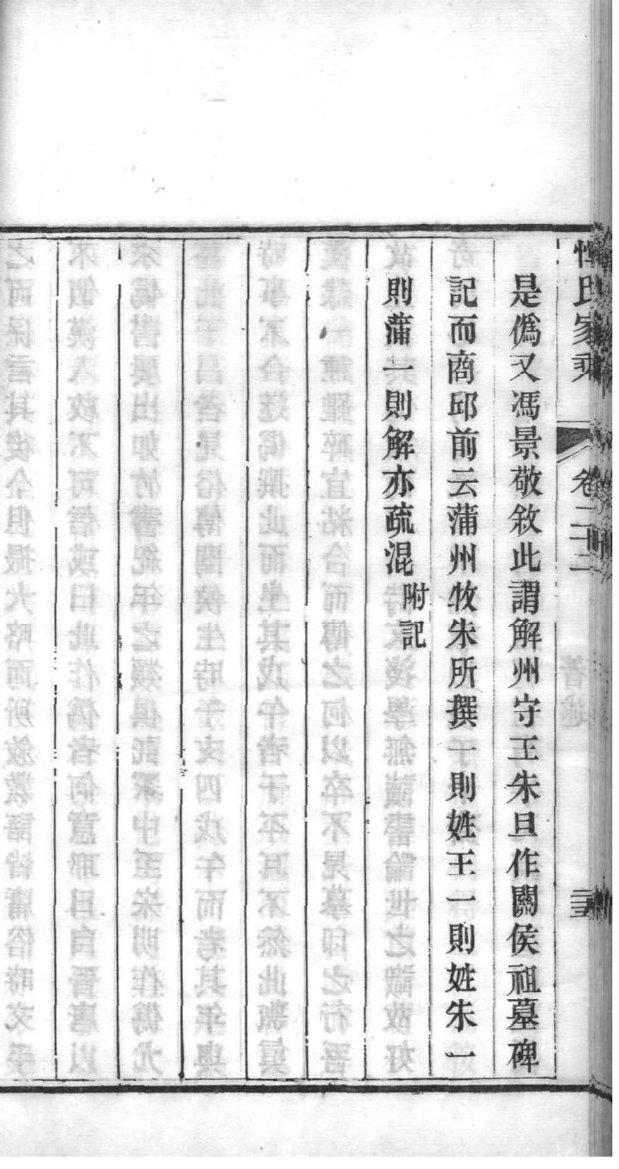 惲氏家乘 卷二十二
是僞又馮景敬敘此謂解州守王朱旦作關侯祖墓碑
記而商邱前云蒲州牧朱所撰一則姓王一則姓朱一
則蒲一則解亦疏混附記